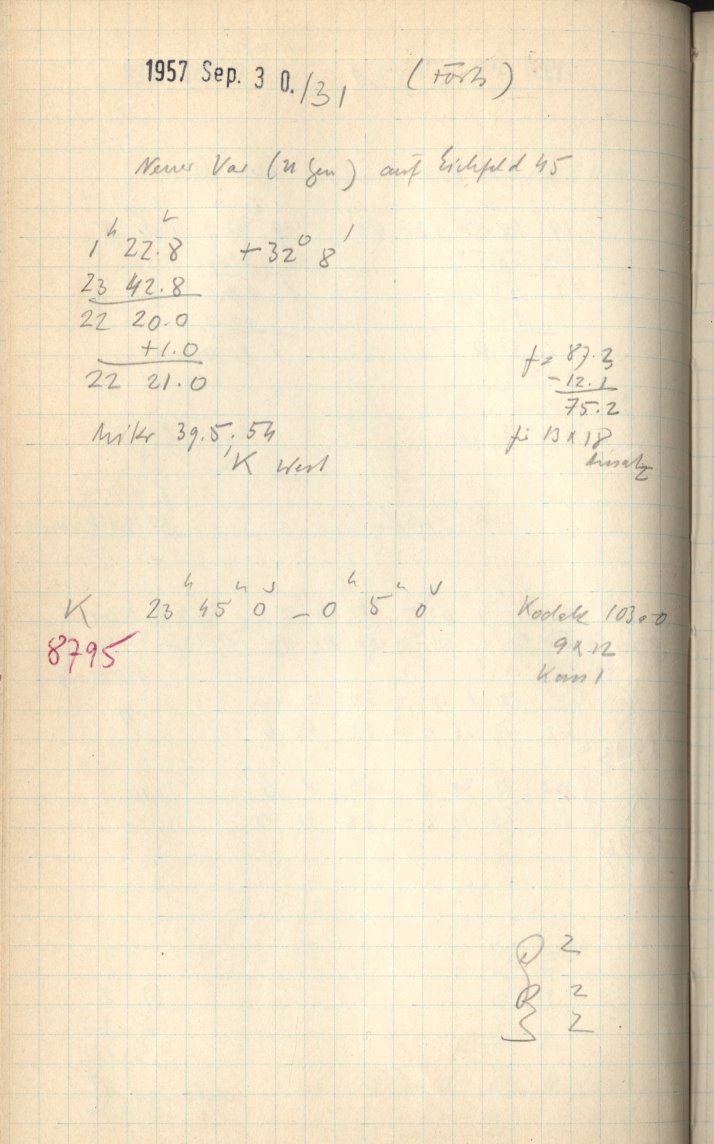 1957 Sep. 30./31
Neuer Var. (U Gem) auf Eichfeld 45
1ʰ 22.8 +32° 8'
23 42.8
22 20.0
+1.0
22 21.0
f = 87.3
-12.1
75.2
Mikr 39.5; 54
K West
f: 13 x 18
Einsatz
K 23ʰ 45ᵐ 0ˢ – 0ʰ 5ᵐ 0ˢ
8795
Kodak 103a-O
9 x 12
Kass 1
2
2
2